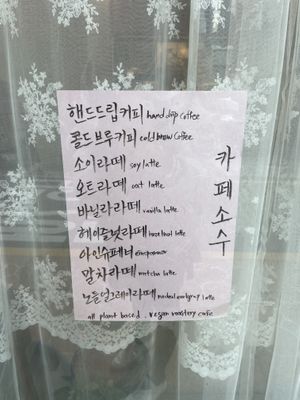 핸드드립커피 hand drip coffee
콜드브루커피 cold brew coffee
소이라떼 soy latte
오트라떼 oat latte
바닐라라떼 vanilla latte
헤이즐넛라떼 hazelnut latte
아인슈페너 einspanner
말차라떼 matcha latte
모들얼그레이라떼 modeul earlgrey latte
all plant based. vegan roastery cafe
카페소수